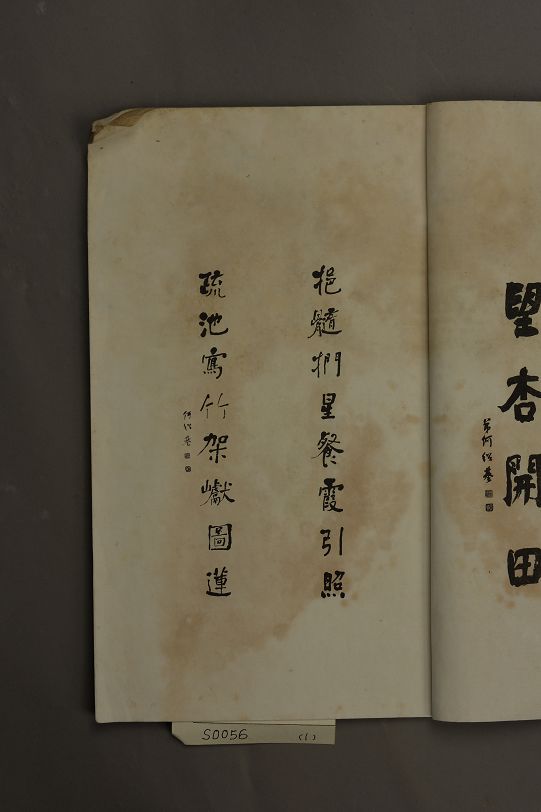 望杏開田
弟何紹基
挹髓捫星餐霞引照
疏池寫竹架巘圖蓮
何紹基
S0056 (1)